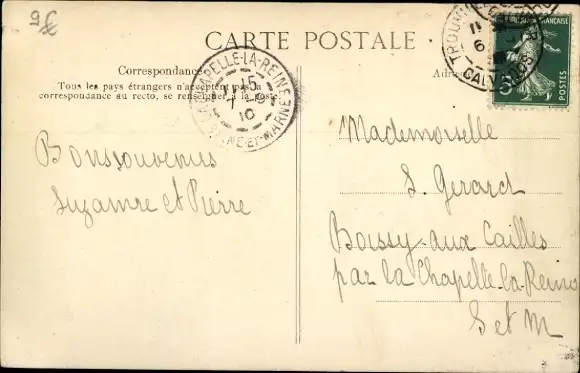 9€
CARTE POSTALE
Correspondance
Tous les pays étrangers n'acceptent pas la
correspondance au recto, se renseigner à la poste
Adre
LA CHAPELLE-LA-REINE
15
7
10
SEINE-ET-MARNE
TROUV
11
6
CALVADOS
FRANÇAISE
Bons souvenirs
Suzanne et Pierre
Mademoiselle
S. Gerard
Boissy-aux Cailles
par la Chapelle-la-Reine
S et M